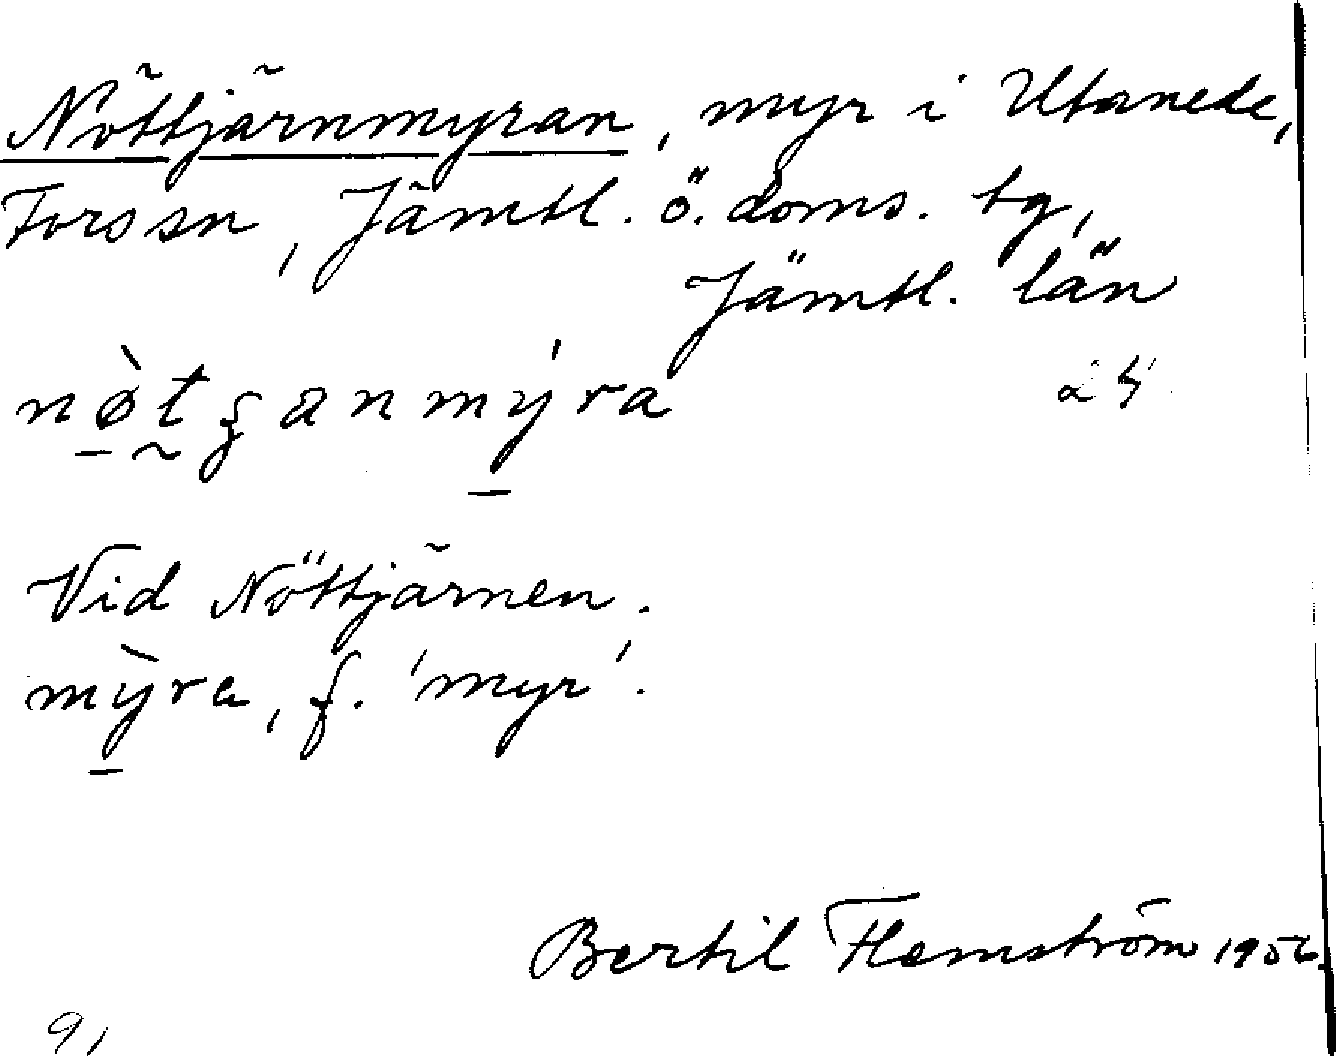 Nöttjärnmyran, myr i Utanede,
Fors sn, Jämtl. ö. doms. tg,
Jämtl. län
nø̀tʒanmýra
Vid Nöttjärnen.
mỳra, f. 'myr'.
Bertil Flemström 1956.
91